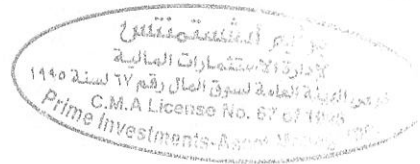 برايم انفستمنتس
لإدارة الاستثمارات المالية
ترخيص الهيئة العامة لسوق المال رقم ٦٧ لسنة ١٩٩٥
C.M.A License No. 67 of
Prime Investments-Asset